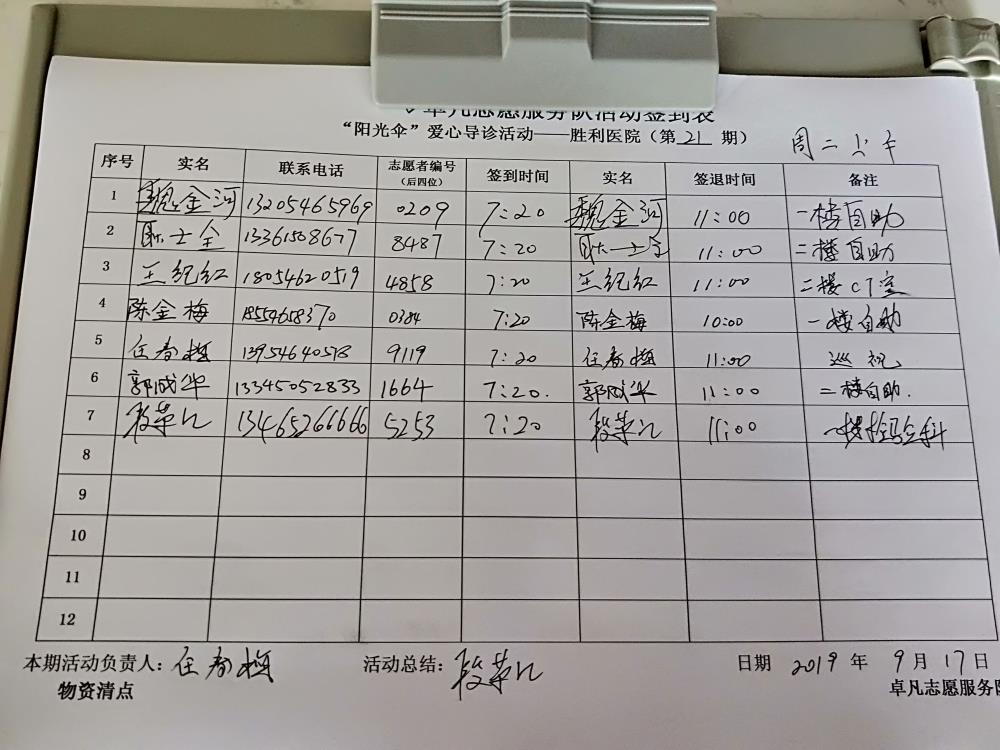 卓凡志愿服务队活动签到表
“阳光伞”爱心导诊活动——胜利医院（第 21 期） 周二上午
序号 实名 联系电话 志愿者编号（后四位） 签到时间 实名 签退时间 备注
1 魏金河 13205465969 0209 7:20 魏金河 11:00 一楼自助
2 耿士全 13361508677 8487 7:20 耿士全 11:00 二楼自助
3 王纪红 18054620519 4858 7:20 王纪红 11:00 二楼CT室
4 陈金梅 18554658370 0384 7:20 陈金梅 10:00 一楼自助
5 任春梅 13954640578 9119 7:20 任春梅 11:00 巡视
6 郭成华 13345052833 1664 7:20. 郭成华 11:00 二楼自助.
7 段苹 13465266666 5253 7:20 段苹 11:00 一楼
8
9
10
11
12
本期活动负责人：任春梅 活动总结：段苹 日期 2019 年 9 月 17 日
物资清点 卓凡志愿服务队